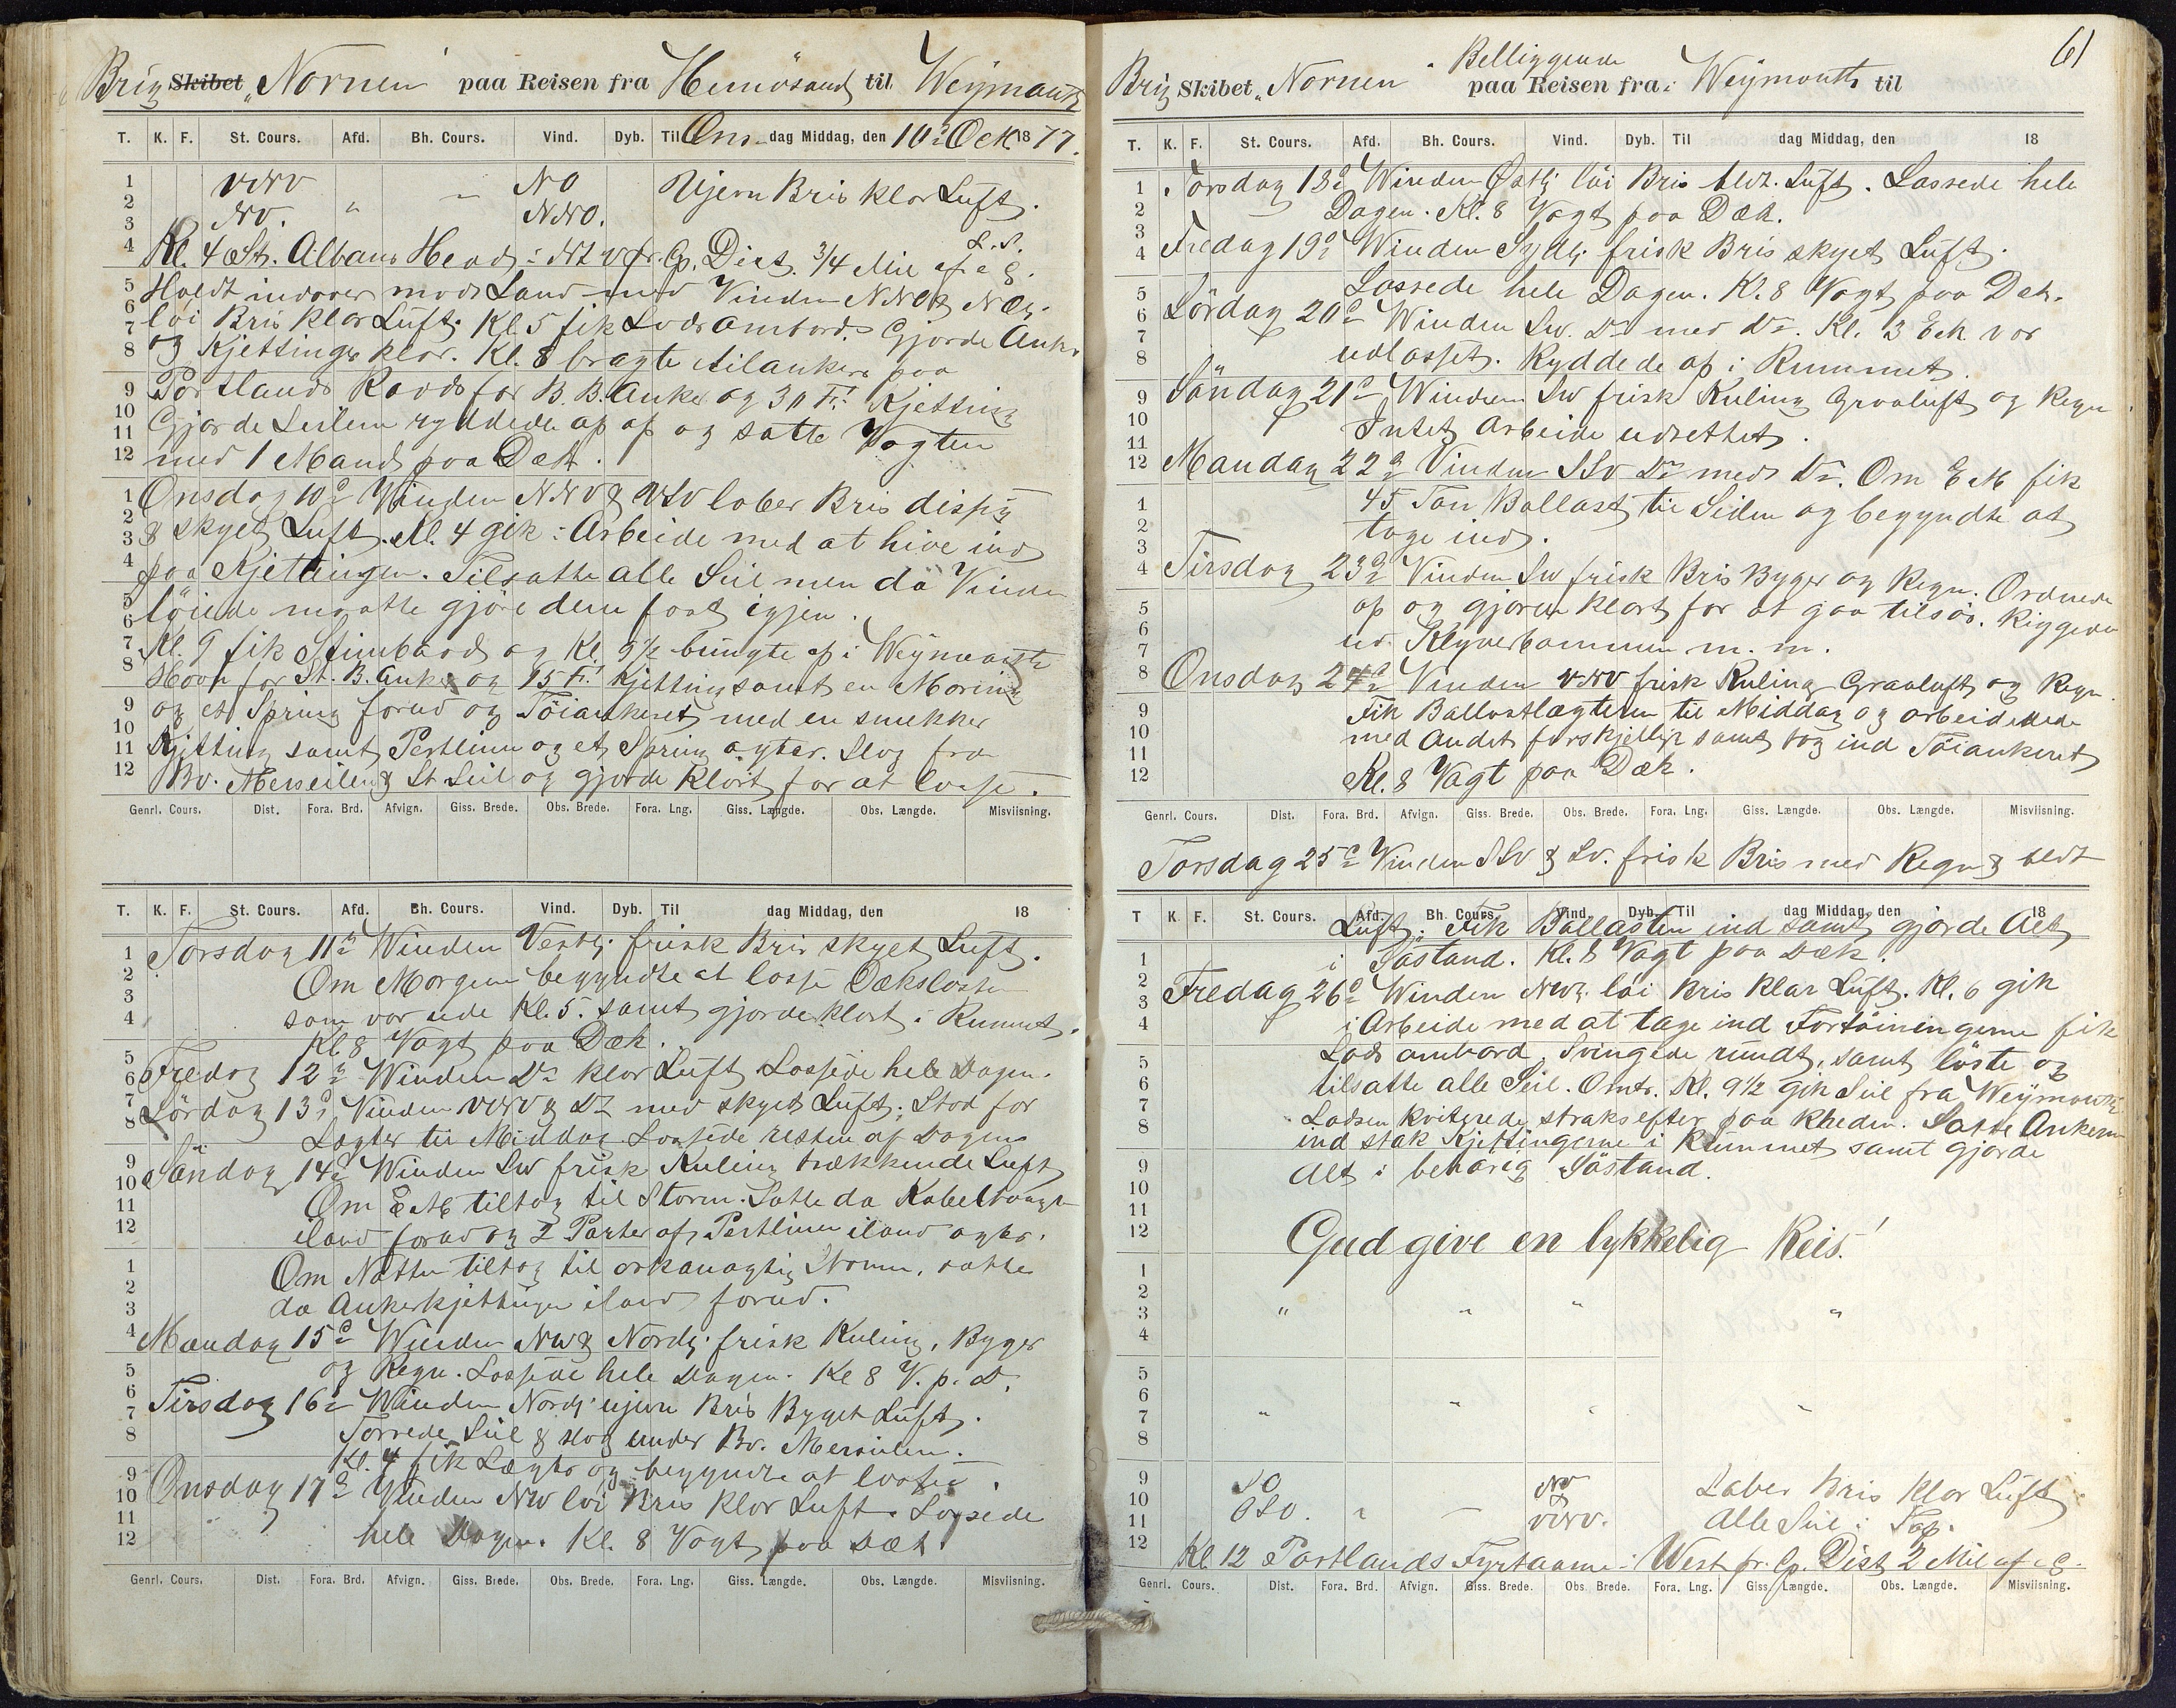 Brig Skibet „Nornen“ paa Reisen fra Hernösand til Weijmouth
T. K. F. St. Cours. Afd. Bh. Cours. Vind. Dyb. Til Ons dag Middag, den 10de Oct. 1877.
1 VNV „ – NO Ujevn Bris klar Luft.
2
3 NV. NNO.
4 Kl. 4 St. Albans Head i Nt V pr. Cp. Dist. 3/4 Mil af a G.
5 Holdt indover mod Land med Vinden NNO & NO.
6 löi Bris klar Luft. Kl. 5 fik Lods ombord. Gjorde Anker
7 og Kjettinger klar. Kl. 8 bragte tilankers paa
8
9 Portlands Raods for B. B. Anker og 30 Fv. Kjetting
10 Gjorde Seilene ryddede op og satte Vagten
11
12 med 1 Mand paa Dæk.
1 Onsdag 10de Vinden NNV & VSV laber Bris disig
2
3 & skyet Luft. Kl. 4 gik i Arbeide med at hive ind
4 paa Kjettingen. Tilsatte alle Seil men da Vinden
5
6 löiede maatte gjöre dem fast igjen.
7 Kl. 9 fik Stimbaad og Kl. 9 1/2 bragte op i Weijmouth
8 Havn for St. B. Anker og 15 Fv. Kjetting samt en Moring
9 og et Spring forud og Töiankeret med en smekker
10
11 Kjetting samt Pertline og et Spring agter. Slog fra
12 Bv. Merseilene & St Seil og gjorde klart for at losse.
Genrl. Cours. Dist. Fora. Brd. Afvign. Giss. Brede. Obs. Brede. Fora. Lng. Giss. Længde. Obs. Længde. Misviisning.
T. K. F. St. Cours. Afd. Bh. Cours. Vind. Dyb. Til dag Middag, den 18
1 Torsdag 11te Winden Vestlg. frisk Bris skyet Luft.
2 Om Morgenen begyndte at losse Dækslasten
3 som var ude Kl. 5. samt gjorde klart i Rummet.
4 Kl. 8 Vagt paa Dæk.
5
6 Fredag 12te Winden Do klar Luft Lossede hele Dagen.
7
8 Lördag 13de Vinden VNV & Do med skyet Luft. Stod for
Lægter til Middag Lossede resten af Dagen
9
10 Söndag 14de Winden SW frisk Kuling trækkende Luft
11 Om EM tiltog til Storm. Satte da Kabeltaaget
12 iland forud og 2 Parter af Pertlinen iland agter.
1 Om Natten tiltog til orkanagtig Storm, satte
2
3 da Ankerkjettingen iland forud.
4 Mandag 15de Winden NW & Nordlg. frisk Kuling, Byger
5 og Regn. Lossede hele Dagen. Kl 8 V. p. D.
6
7 Tirsdag 16de Winden Nordlg. ujevn Bris Byget Luft.
8 Tørrede Seil & slog under Bv. Merseilene.
9 Kl. 4 fik Lægter og begyndte at losse.
10 Onsdag 17de Vinden NW löi Bris klar Luft. Lossede
11
12 hele Dagen. Kl. 8 Vagt paa Dæk.
Genrl. Cours. Dist. Fora. Brd. Afvign. Giss. Brede. Obs. Brede. Fora. Lng. Giss. Længde. Obs. Længde. Misviisning.
61
Beliggende
Brig Skibet „Nornen“ paa Reisen fra i Weijmouth til
T. K. F. St. Cours. Afd. Bh. Cours. Vind. Dyb. Til dag Middag, den 18
1 Torsdag 18de Winden Østlg. löi Bris bldt. Luft. Lossede hele
2 Dagen. Kl. 8 Vagt paa Dæk.
3
4 Fredag 19de Winden Sydlg. frisk Bris skyet Luft.
5 Lossede hele Dagen. Kl. 8 Vagt paa Dæk.
6 Lördag 20de Winden SW. Do med Do. Kl. 3 EM var
7
8 udlosset. Ryddede op i Rummet.
9 Söndag 21de Winden SW frisk Kuling Graaluft og Regn
10
11 Intet Arbeide udrettet.
12 Mandag 22de Vinden SSV Do med Do. Om EM fik
1 45 Ton Ballast til Siden og begyndte at
2 tage ind.
3
4 Tirsdag 23de Vinden SW frisk Bris Byger og Regn. Ordnede
5 op og gjorde klart for at gaa tilsös. Riggede
6
7 ud Klyverbommen m. m.
8 Onsdag 24de Vinden VNV frisk Kuling Graaluft og Regn.
9 Fik Ballastlægteren til Middag og arbeidede
10 med Andet forskjelligt samt tog ind Töiankeret
11
12 Kl. 8 Vagt paa Dæk.
Genrl. Cours. Dist. Fora. Brd. Afvign. Giss. Brede. Obs. Brede. Fora. Lng. Giss. Længde. Obs. Længde. Misviisning.
Torsdag 25de Vinden SSV & SV. frisk Bris med Regn & bldt
T K F. St. Cours. Afd. Bh. Cours. Vind. Dyb. Til dag Middag, den 18
Luft. Fik Ballasten ind samt gjorde Alt
1 i Söstand. Kl. 8 Vagt paa Dæk.
2
3 Fredag 26de Winden NW. löi Bris klar Luft. Kl. 6 gik
4 i Arbeide med at tage ind Fortöiningerne fik
5 Lods ombord, Svingede rundt, samt löste og
6 tilsatte alle Seil. Omtr. Kl. 9 1/2 gik Seil fra Weijmouth
7 Lodsen kviterede straks efter paa Rheden. Satte Ankerne
8 ind stak Kjettingerne i Rummet samt gjorde
9 Alt i behörig Söstand.
10
11
12 Gud give en lykkelig Reis!
1
2
3 „ „ „ „
4
5
6
7 „ „ „ „
8
9 SO NV Laber Bris klar Luft
10 &
11 OSO. „ – VNV. Alle Seil i Top.
12 Kl. 12 Portlands Fyrtaarne i West pr. Cp. Dist 2 Mil af a G.
Genrl. Cours. Dist. Fora. Brd. Afvign. Giss. Brede. Obs Brede. Fora. Lng. Giss. Længde. Obs. Længde. Misviisning.